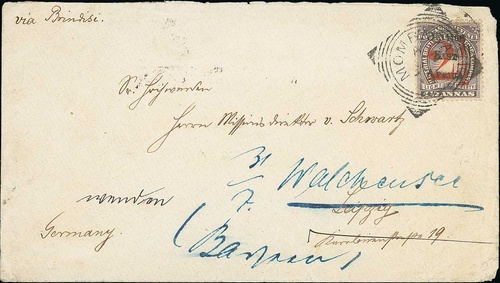 via Brindisi.
MOMBASA
2
2 ANNAS
Sr. Hochwürden
Herrn Missionsdirektor v. Schwartz
31/7. Walchensee
wenden
Leipzig
Germany.
(Bayern)
Karolinenstrasse 19.